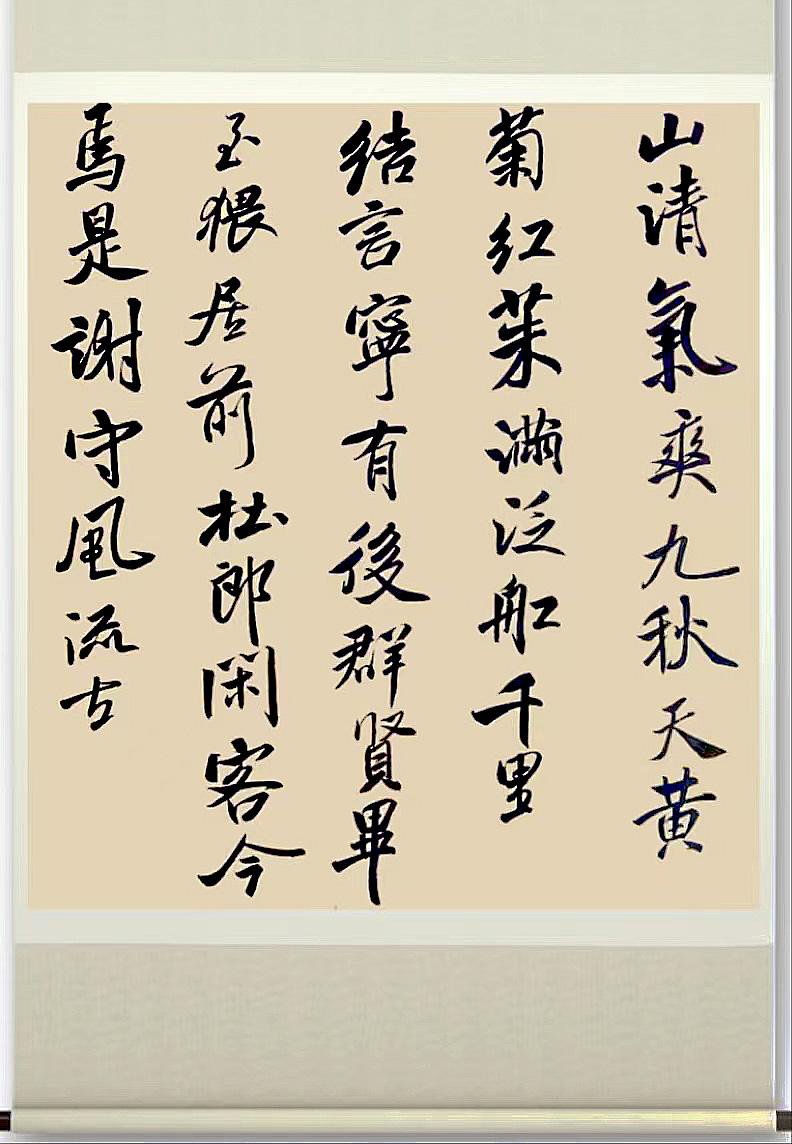 山清氣爽九秋天黄
菊红茱滿泛舡千里
结言寧有後群賢畢
至猥居前杜郎閑客今
焉是謝守風流古